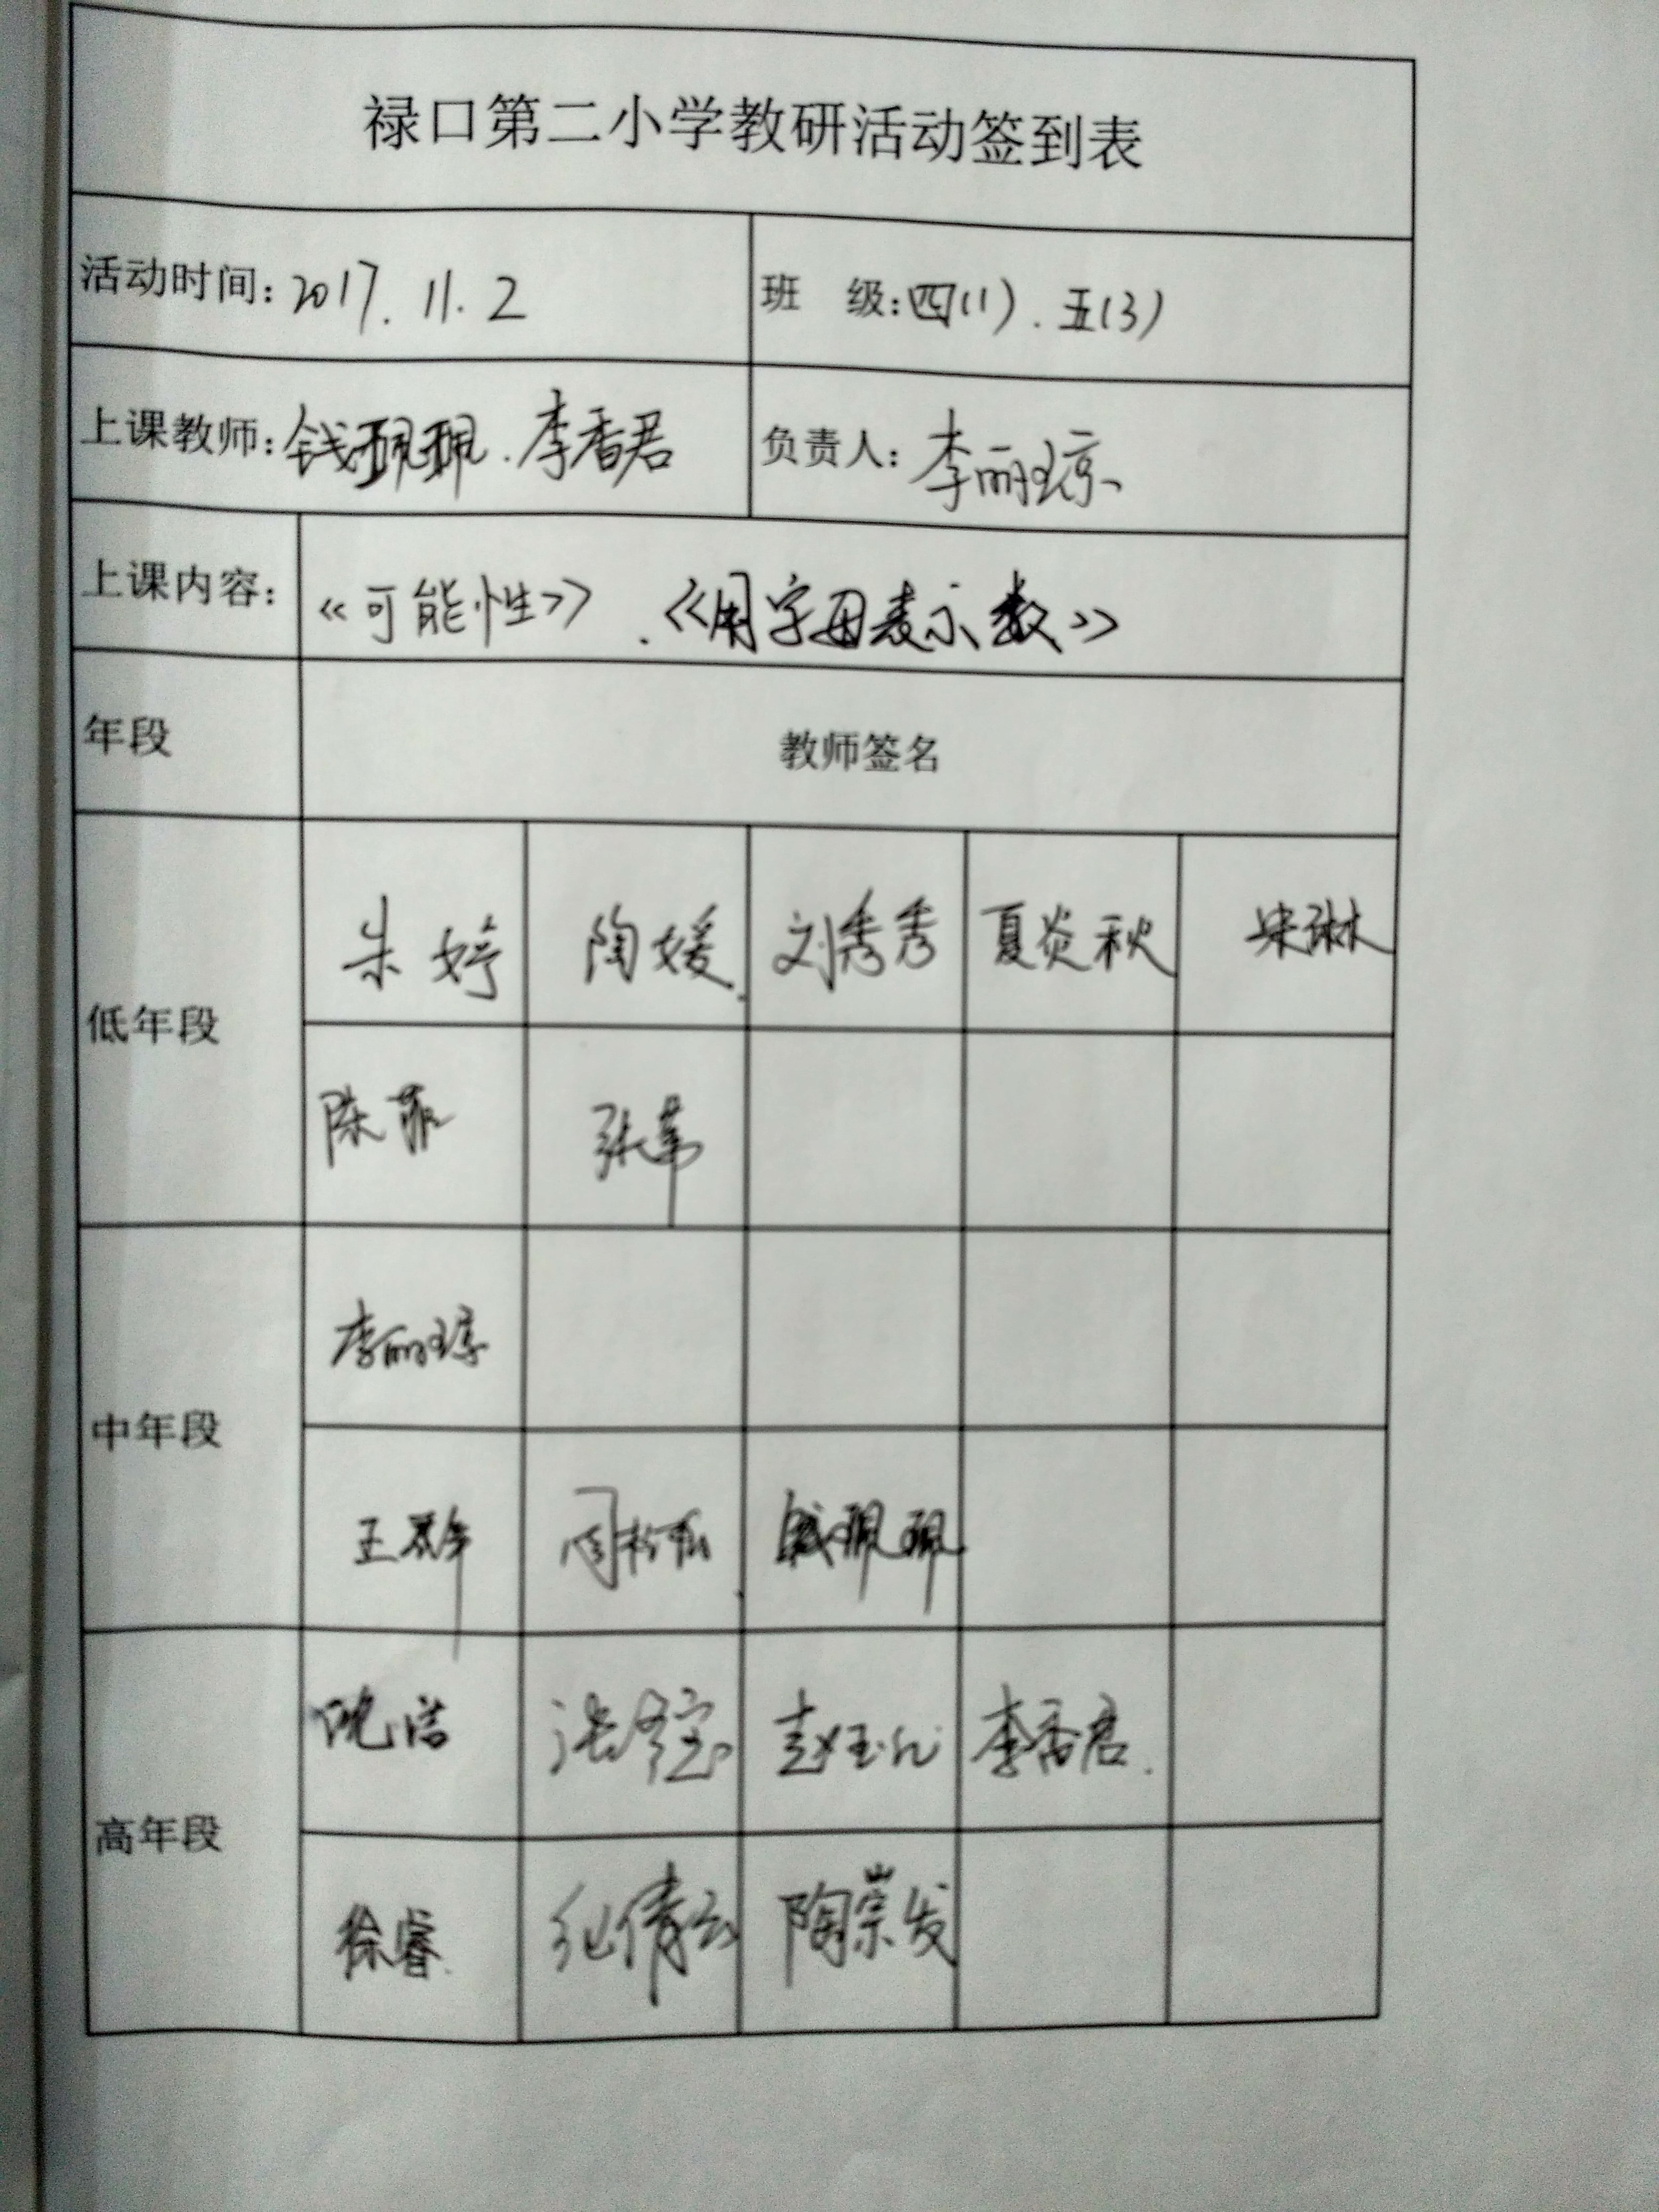 禄口第二小学教研活动签到表
活动时间: 2017.11.2 班 级: 四(1). 五(3)
上课教师: 钱珮珮.李香君 负责人: 李丽琼
上课内容: 《可能性》.《用字母表示数》
年段 教师签名
朱婷 陶媛 刘秀秀 夏炎秋 宋琳
低年段
陈菲 张苇
李丽琼
中年段
钱珮珮
倪洁 李香君.
高年段
徐睿 纪倩云 陶崇发